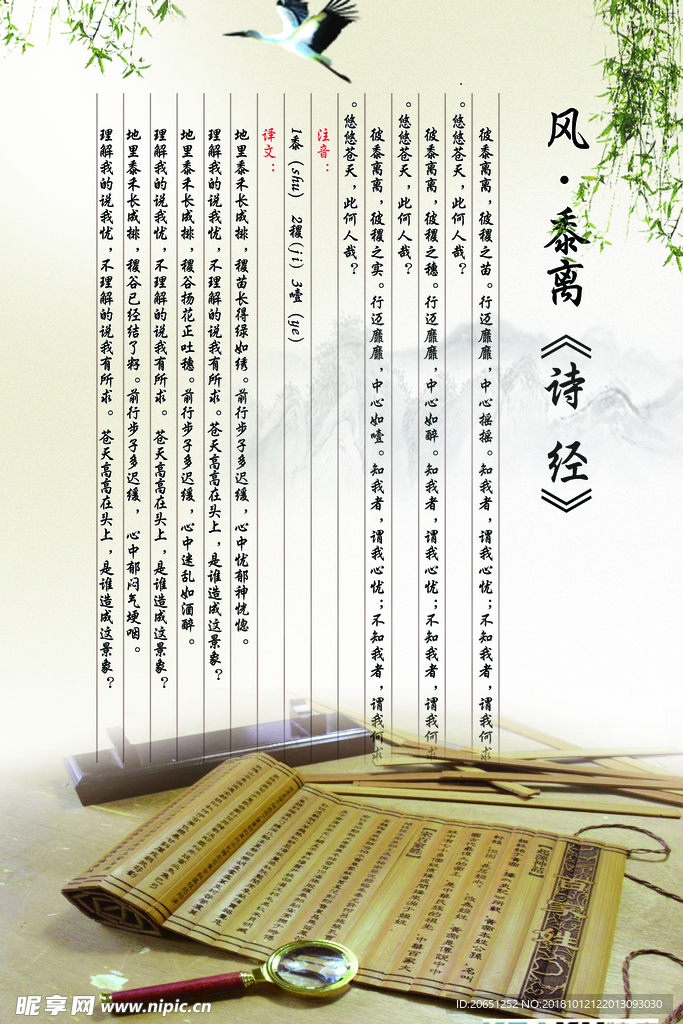 风·黍离《诗经》
彼黍离离，彼稷之苗。行迈靡靡，中心摇摇。知我者，谓我心忧；不知我者，谓我何求
。悠悠苍天，此何人哉？
彼黍离离，彼稷之穗。行迈靡靡，中心如醉。知我者，谓我心忧；不知我者，谓我何求
。悠悠苍天，此何人哉？
彼黍离离，彼稷之实。行迈靡靡，中心如噎。知我者，谓我心忧；不知我者，谓我何求
。悠悠苍天，此何人哉？
注音：
1黍（shu） 2稷(ji） 3噎（ye）
译文：
地里黍禾长成排，稷苗长得绿如绣。前行步子多迟缓，心中忧郁神恍惚。
理解我的说我忧，不理解的说我有所求。苍天高高在头上，是谁造成这景象？
地里黍禾长成排，稷谷扬花正吐穗。前行步子多迟缓，心中迷乱如酒醉。
理解我的说我忧，不理解的说我有所求。苍天高高在头上，是谁造成这景象？
地里黍禾长成排，稷谷已经结了籽。前行步子多迟缓，心中郁闷气埂咽。
理解我的说我忧，不理解的说我有所求。苍天高高在头上，是谁造成这景象？
百家姓
昵享网 www.nipic.cn
ID:20651252 NO:20181012122013093030